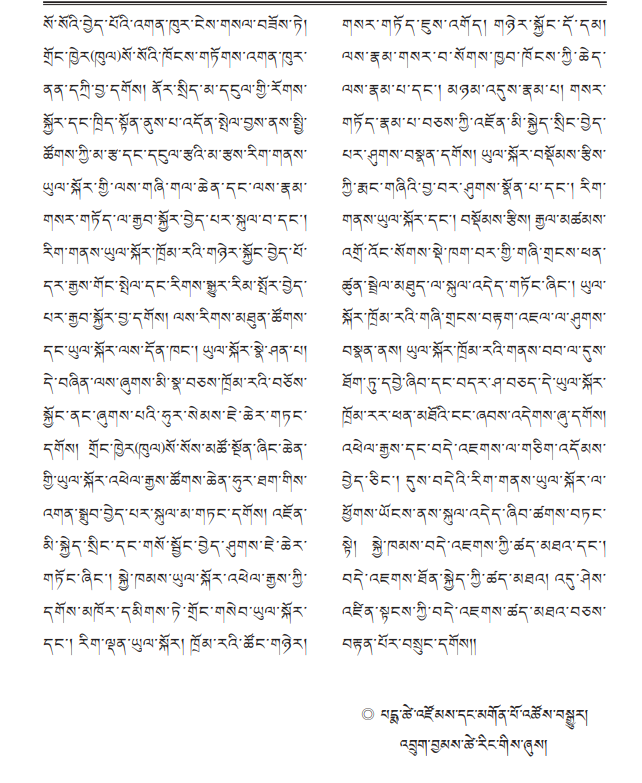 སོ་སོའི་བྱེད་པོའི་འགན་ཁུར་ངེས་གསལ་བཟོས་ཏེ།
གྲོང་ཁྱེར(ཁུལ)སོ་སོའི་ཁོངས་གཏོགས་འགན་ཁུར་
ནན་དཀྲི་བྱ་དགོས། ནོར་སྲིད་མ་དངུལ་གྱི་རོགས་
སྐྱོར་དང་ཁྲིད་སྟོན་ནུས་པ་འདོན་སྤེལ་བྱས་ནས་སྤྱི་
ཚོགས་ཀྱི་མ་རྩ་དང་དངུལ་རྩའི་མ་རྩས་རིག་གནས་
ཡུལ་སྐོར་གྱི་ལས་གཞི་གལ་ཆེན་དང་ལས་རྣམ་
གསར་གཏོད་ལ་རྒྱབ་སྐྱོར་བྱེད་པར་སྐུལ་བ་དང་།
རིག་གནས་ཡུལ་སྐོར་ཁྲོམ་རའི་གཉེར་སྐྱོང་བྱེད་པོ་
དར་རྒྱས་གོང་སྤེལ་དང་རིགས་སྒྱུར་རིམ་སྤོར་བྱེད་
པར་རྒྱབ་སྐྱོར་བྱ་དགོས། ལས་རིགས་མཐུན་ཚོགས་
དང་ཡུལ་སྐོར་ལས་དོན་ཁང་། ཡུལ་སྐོར་སྣེ་ཤན་པ།
དེ་བཞིན་ལས་ཞུགས་མི་སྣ་བཅས་ཁྲོམ་རའི་བཅོས་
སྐྱོང་ནང་ཞུགས་པའི་ཧུར་སེམས་ཇེ་ཆེར་གཏང་
དགོས། གྲོང་ཁྱེར(ཁུལ)སོ་སོས་མཚོ་སྔོན་ཞིང་ཆེན་
གྱི་ཡུལ་སྐོར་འཕེལ་རྒྱས་ཚོགས་ཆེན་ཧུར་ཐག་གིས་
འགན་སྒྲུབ་བྱེད་པར་སྐུལ་མ་གཏང་དགོས། འཛོན་
མི་སྐྱེད་སྲིང་དང་གསོ་སྦྱོང་བྱེད་ཤུགས་ཇེ་ཆེར་
གཏོང་ཞིང་། སྐྱེ་ཁམས་ཡུལ་སྐོར་འཕེལ་རྒྱས་ཀྱི་
དགོས་མཁོར་དམིགས་ཏེ་གྲོང་གསེབ་ཡུལ་སྐོར་
དང་། རིག་ལྡན་ཡུལ་སྐོར། ཁྲོམ་རའི་ཚོང་གཉེར།
གསར་གཏོད་ཇུས་འགོད། གཉེར་སྐྱོང་དོ་དམ།
ལས་རྣམ་གསར་བ་སོགས་ཁྱབ་ཁོངས་ཀྱི་ཆེད་
ལས་རྣམ་པ་དང་། མཉམ་འདུས་རྣམ་པ། གསར་
གཏོད་རྣམ་པ་བཅས་ཀྱི་འཛོན་མི་སྐྱེད་སྲིང་བྱེད་
པར་ཤུགས་བསྣན་དགོས། ཡུལ་སྐོར་བསྡོམས་རྩིས་
ཀྱི་རྨང་གཞིའི་བྱ་བར་ཤུགས་སྣོན་པ་དང་། རིག་
གནས་ཡུལ་སྐོར་དང་། བསྡོམས་རྩིས། རྒྱལ་མཚམས་
འགྲོ་འོང་སོགས་སྡེ་ཁག་བར་གྱི་གཞི་གྲངས་ཕན་
ཚུན་སྦྲེལ་མཐུད་ལ་སྐུལ་འདེད་གཏོང་ཞིང་། ཡུལ་
སྐོར་ཁྲོམ་རའི་གཞི་གྲངས་བརྟག་འཇལ་ལ་ཤུགས་
བསྣན་ནས། ཡུལ་སྐོར་ཁྲོམ་རའི་གནས་བབ་ལ་དུས་
ཐོག་ཏུ་དབྱེ་ཞིབ་དང་བདར་ཤ་བཅད་དེ་ཡུལ་སྐོར་
ཁྲོམ་རར་ཕན་མཐོའི་ངང་ཞབས་འདེགས་ཞུ་དགོས།
འཕེལ་རྒྱས་དང་བདེ་འཇགས་ལ་གཅིག་འདོམས་
བྱེད་ཅིང་། དུས་བདེའི་རིག་གནས་ཡུལ་སྐོར་ལ་
ཕྱོགས་ཡོངས་ནས་སྐུལ་འདེད་ཞིབ་ཚགས་བཏང་
སྟེ། སྐྱེ་ཁམས་བདེ་འཇགས་ཀྱི་ཚད་མཐའ་དང་།
བདེ་འཇགས་ཐོན་སྐྱེད་ཀྱི་ཚད་མཐའ། འདུ་ཤེས་
འཛིན་སྟངས་ཀྱི་བདེ་འཇགས་ཚད་མཐའ་བཅས་
བརྟན་པོར་བསྲུང་དགོས།།
◎ པདྨ་ཚེ་འཛོམས་དང་མགོན་པོ་འཚོས་བསྒྱུར།
འབྲུག་བྱམས་ཚེ་རིང་གིས་ཞུས།